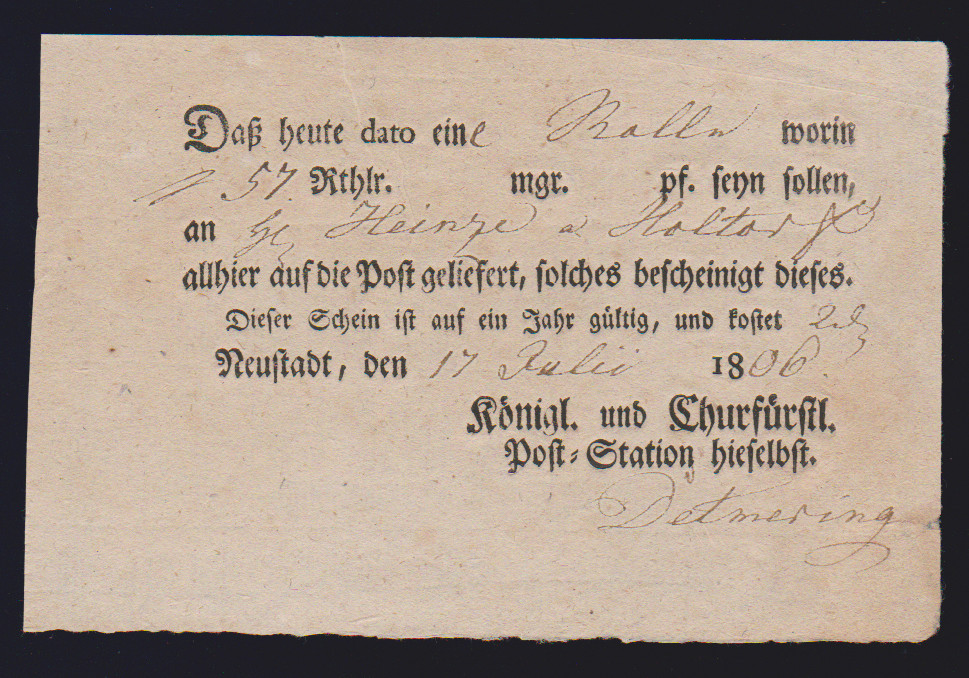 Daß heute dato eine Rolle worin
57 Rthlr. mgr. pf. seyn sollen,
an Heinze a Holtorf
allhier auf die Post geliefert, solches bescheinigt dieses.
Dieser Schein ist auf ein Jahr gültig, und kostet 2
Neustadt, den 17 Julii 1806.
Königl. und Churfürstl.
Post=Station hieselbst.
Detmering